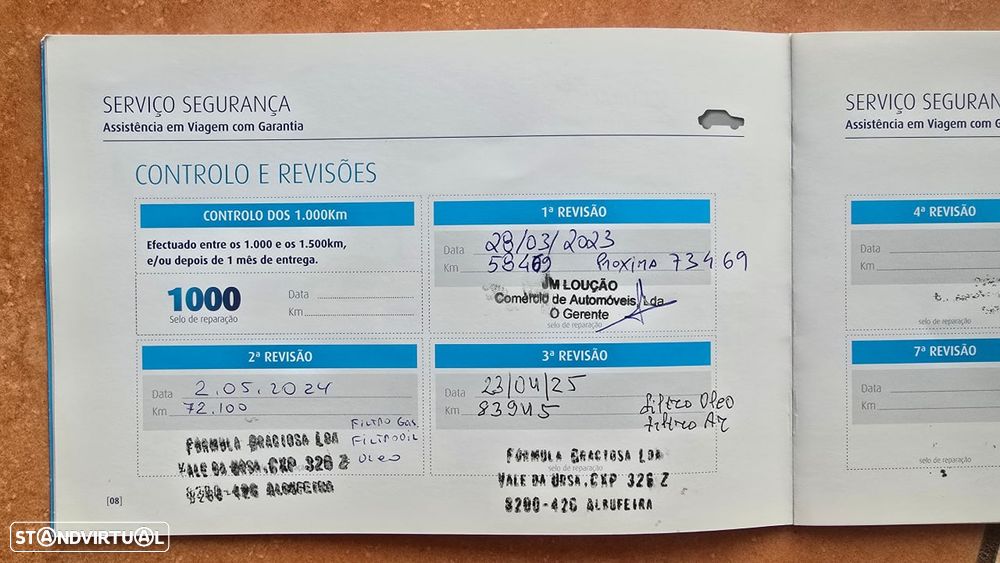 SERVIÇO SEGURANÇA
Assistência em Viagem com Garantia
CONTROLO E REVISÕES
CONTROLO DOS 1.000Km
Efectuado entre os 1.000 e os 1.500km,
e/ou depois de 1 mês de entrega.
1000
Selo de reparação
Data
Km
1ª REVISÃO
Data 28/03/2023
Km 58469 PROXIMA 73469
JM LOUÇÃO
Comércio de Automóveis, Lda
O Gerente
selo de reparação
2ª REVISÃO
Data 2.05.2024
Km 72.100
FILTRO GAS.
FILTRO OIL
OLEO
FORMULA GRACIOSA LDA
VALE DA URSA, CXP 326 Z
8200-426 ALBUFEIRA
3ª REVISÃO
Data 23/04/25
Km 83945
Filtro Oleo
Filtro Ar
selo de reparação
FORMULA GRACIOSA LDA
VALE DA URSA, CXP 326 Z
8200-426 ALBUFEIRA
[08]
SERVIÇO SEGURAN
Assistência em Viagem com G
4ª REVISÃO
Data
Km
selo de reparação
7ª REVISÃO
Data
Km
selo de reparação
STANDVIRTUAL